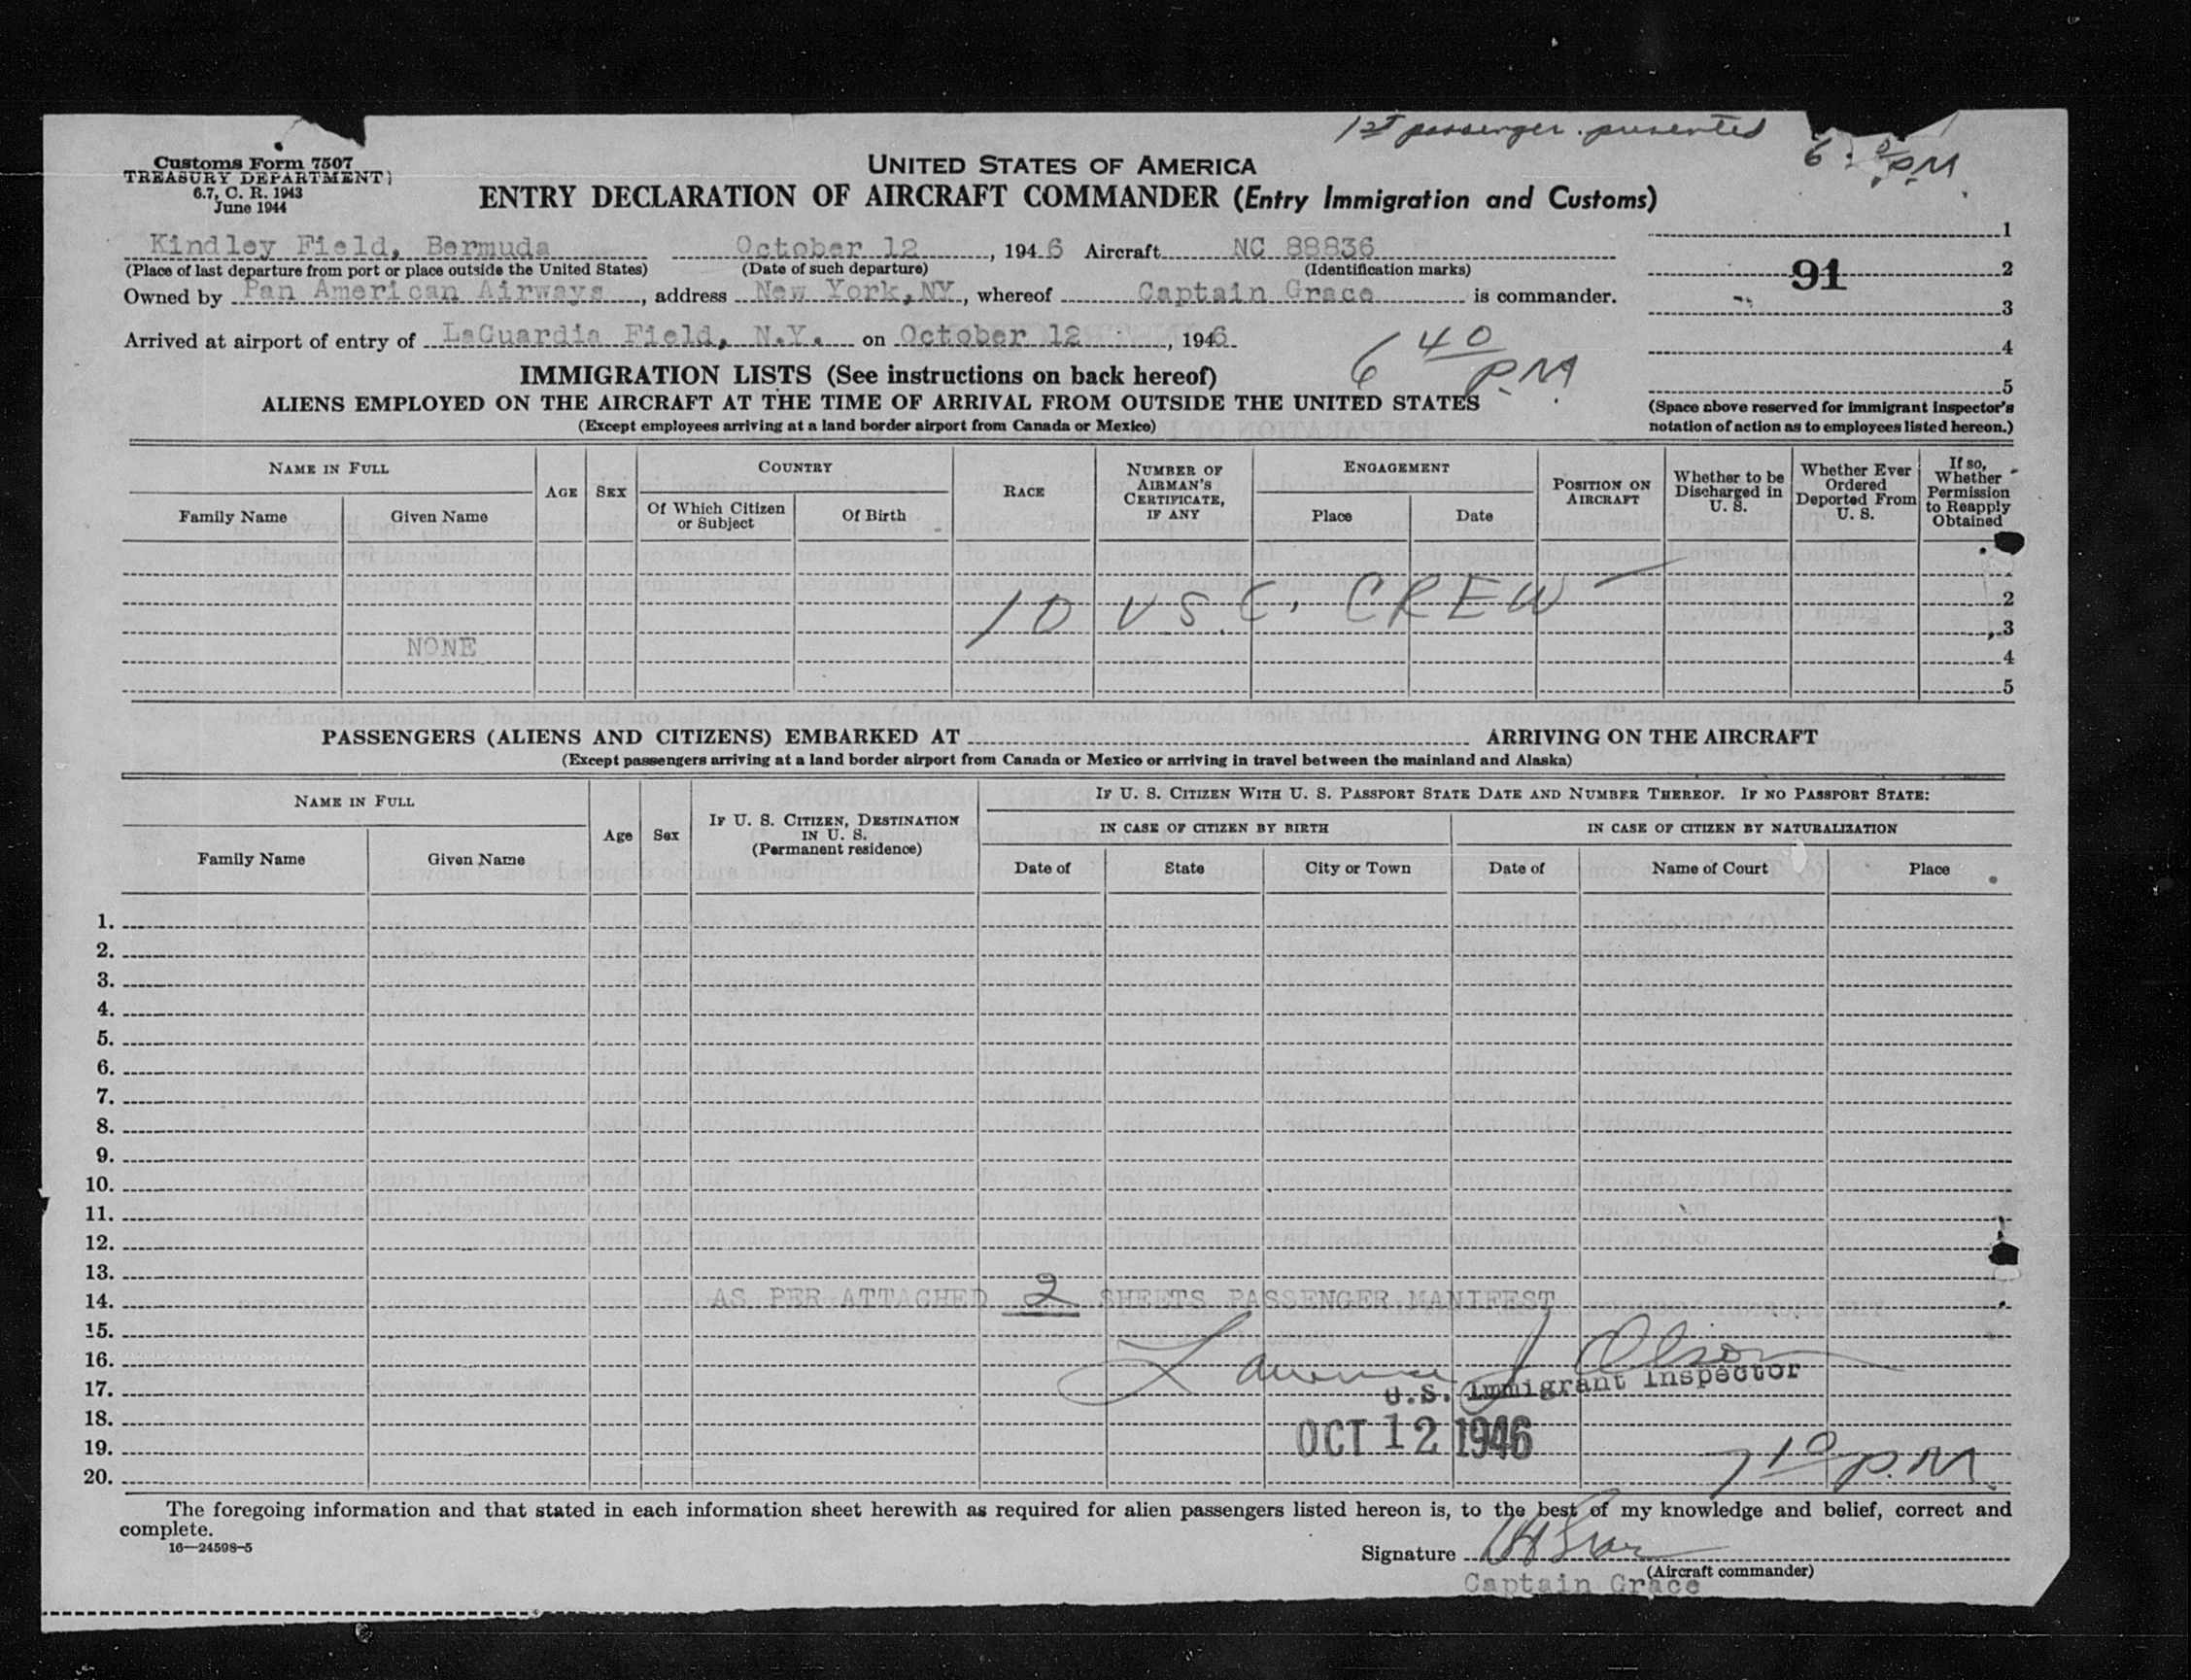 1st passenger presented
6: PM
Customs Form 7507
TREASURY DEPARTMENT
6.7, C. R. 1943
June 1944
UNITED STATES OF AMERICA
ENTRY DECLARATION OF AIRCRAFT COMMANDER (Entry Immigration and Customs)
Kindley Field, Bermuda October 12, 1946 Aircraft NC 88836
(Place of last departure from port or place outside the United States) (Date of such departure) (Identification marks)
Owned by Pan American Airways, address New York, NY, whereof Captain Grace is commander.
Arrived at airport of entry of LaGuardia Field, N.Y. on October 12, 1946
6 40 P.M.
1
91 2
3
4
5
(Space above reserved for immigrant inspector's
notation of action as to employees listed hereon.)
IMMIGRATION LISTS (See instructions on back hereof)
ALIENS EMPLOYED ON THE AIRCRAFT AT THE TIME OF ARRIVAL FROM OUTSIDE THE UNITED STATES
(Except employees arriving at a land border airport from Canada or Mexico)
NAME IN FULL
Family Name Given Name
AGE
SEX
COUNTRY
Of Which Citizen or Subject
Of Birth
RACE
NUMBER OF AIRMAN'S CERTIFICATE, IF ANY
ENGAGEMENT
Place Date
POSITION ON AIRCRAFT
Whether to be Discharged in U. S.
Whether Ever Ordered Deported From U. S.
If so, Whether Permission to Reapply Obtained
10 U.S.C. CREW
2
3
NONE
4
5
PASSENGERS (ALIENS AND CITIZENS) EMBARKED AT ARRIVING ON THE AIRCRAFT
(Except passengers arriving at a land border airport from Canada or Mexico or arriving in travel between the mainland and Alaska)
NAME IN FULL
Family Name Given Name
Age
Sex
IF U. S. CITIZEN, DESTINATION IN U. S. (Permanent residence)
IF U. S. CITIZEN WITH U. S. PASSPORT STATE DATE AND NUMBER THEREOF. IF NO PASSPORT STATE:
IN CASE OF CITIZEN BY BIRTH IN CASE OF CITIZEN BY NATURALIZATION
Date of State City or Town Date of Name of Court Place
1.
2.
3.
4.
5.
6.
7.
8.
9.
10.
11.
12.
13.
14. AS PER ATTACHED 2 SHEETS PASSENGER MANIFEST
15.
16. Lawrence J Olson
17. U.S. Immigrant Inspector
18.
19. OCT 12 1946
7 10 P.M.
20.
The foregoing information and that stated in each information sheet herewith as required for alien passengers listed hereon is, to the best of my knowledge and belief, correct and
complete.
16—24598-5
Signature
(Aircraft commander)
Captain Grace